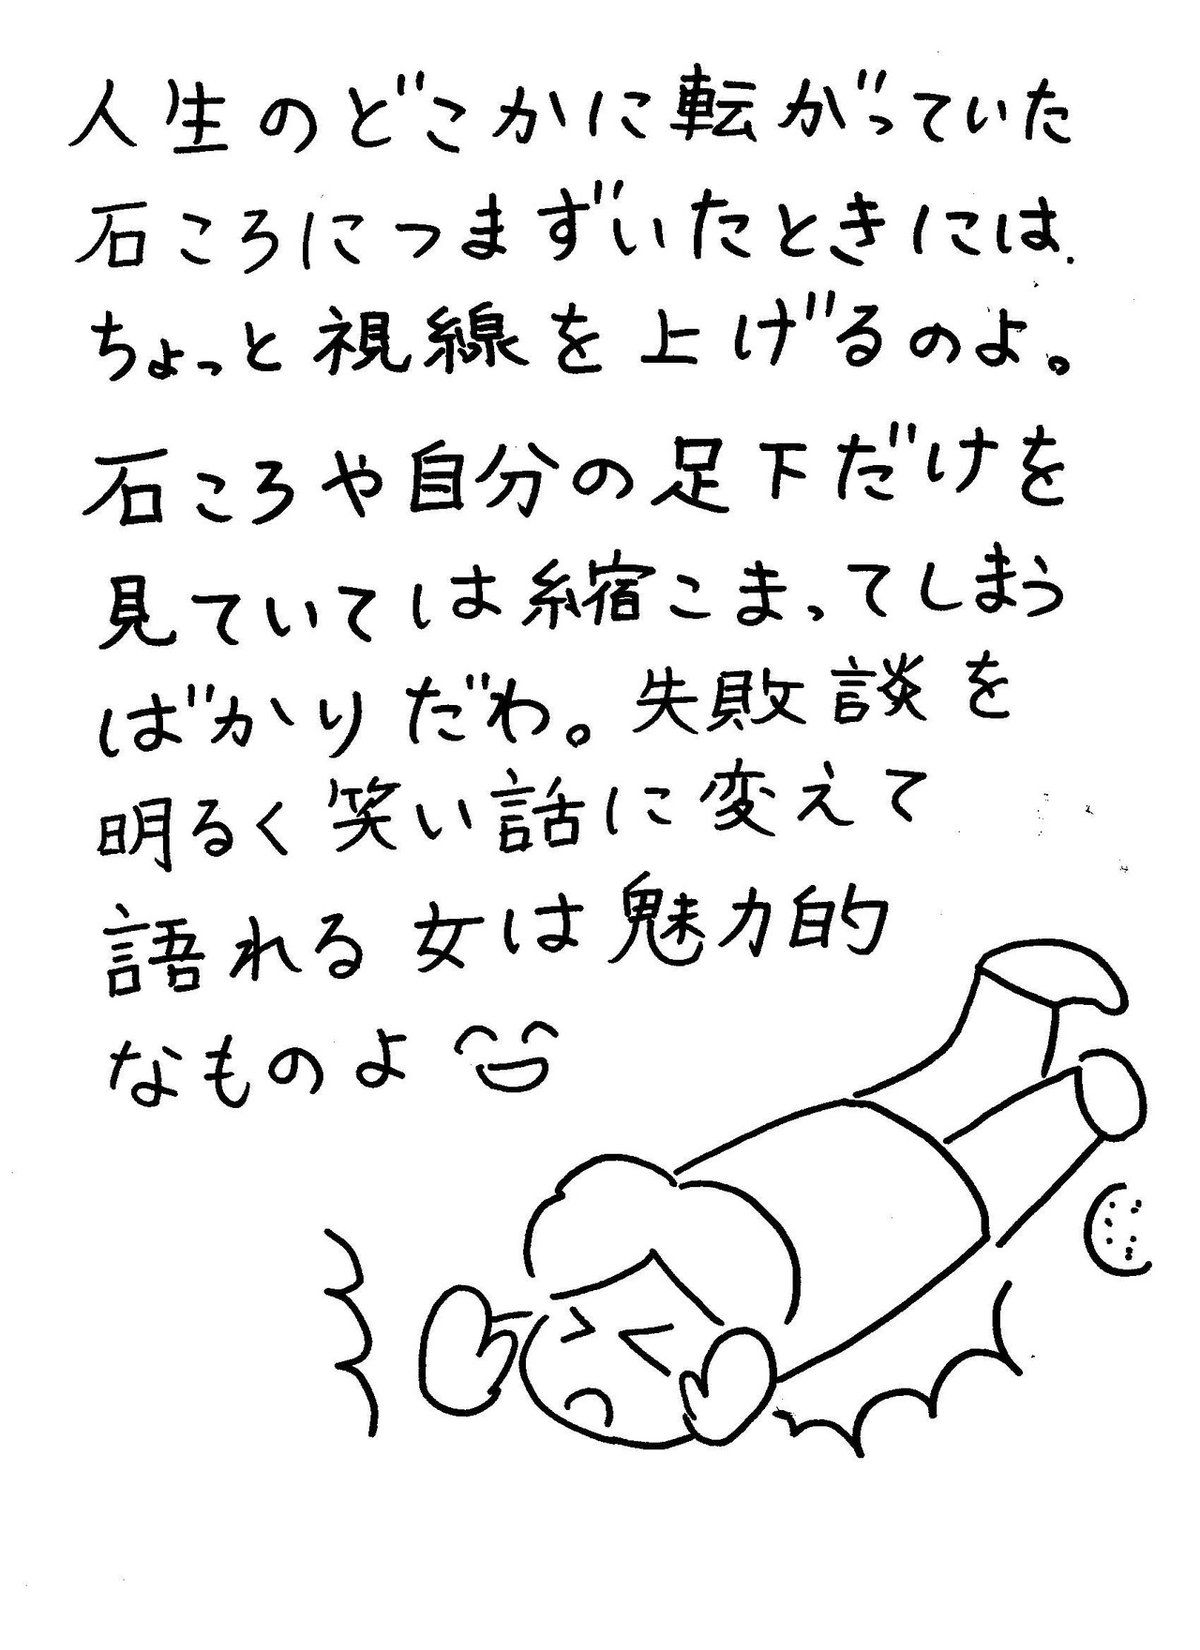 人生のどこかに転がっていた
石ころにつまずいたときには、
ちょっと視線を上げるのよ。
石ころや自分の足下だけを
見ていては縮こまってしまう
ばかりだわ。失敗談を
明るく笑い話に変えて
語れる女は魅力的
なものよ